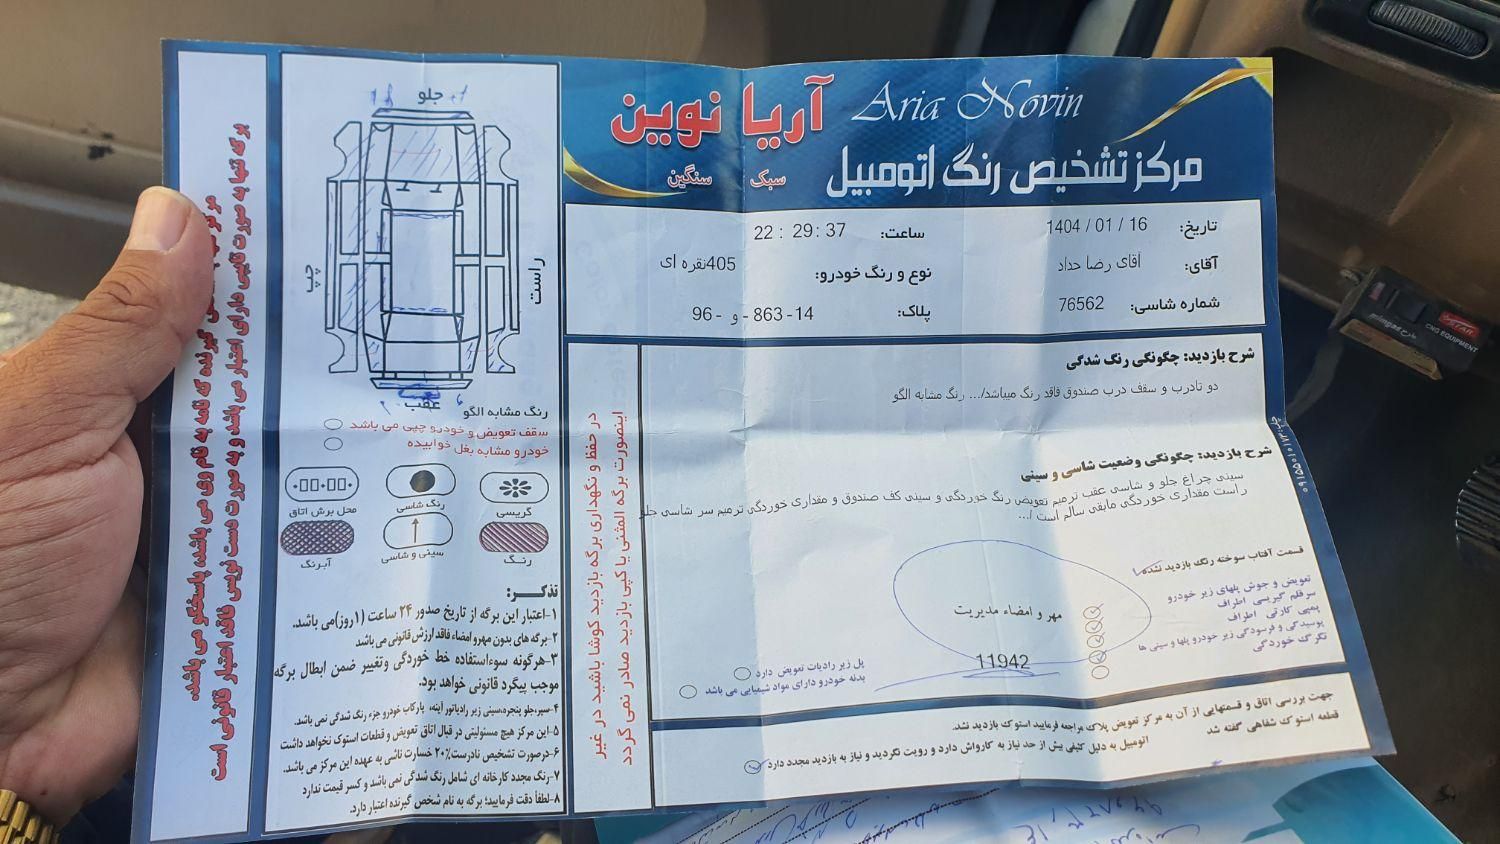 آریا نوین Aria Novin
سبک سنگین
مرکز تشخیص رنگ اتومبیل
تاریخ: 1404 / 01 / 16
ساعت: 22 : 29 : 37
آقای: آقای رضا حداد
نوع و رنگ خودرو: 405نقره ای
شماره شاسی: 76562
پلاک: 96- و - 863 -14
شرح بازدید: چگونگی رنگ شدگی
دو تادرب و سقف درب صندوق فاقد رنگ میباشد/... رنگ مشابه الگو
شرح بازدید: چگونگی وضعیت شاسی و سینی
سینی چراغ جلو و شاسی عقب ترمیم تعویض رنگ خوردگی و سینی کف صندوق و مقداری خوردگی ترمیم سر شاسی جلو
راست مقداری خوردگی مابقی سالم است /...
قسمت آفتاب سوخته رنگ بازدید نشده
تعویض و جوش پلهای زیر خودرو
سرقلم گیریسی اطراف
پمپی کارتی اطراف
پوسیدگی و فرسودگی زیر خودرو پلها و سینی ها
تگرگ خوردگی
مهر و امضاء مدیریت
11942
پل زیر رادیات تعویض دارد
بدنه خودرو دارای مواد شیمیایی می باشد
جهت بررسی اتاق و قسمتهایی از آن به مرکز تعویض پلاک مراجعه فرمایید استوک بازدید نشد.
قطعه استوک شفاهی گفته شد
اتومبیل به دلیل کثیفی بیش از حد نیاز به کارواش دارد و رویت نگردید و نیاز به بازدید مجدد دارد
در حفظ و نگهداری برگه بازدید کوشا باشید در غیر
اینصورت برگه المثنی یا کپی بازدید صادر نمی گردد
جلو
چپ
راست
عقب
رنگ مشابه الگو
سقف تعویض و خودرو چپی می باشد
خودرو مشابه بغل خوابیده
گریسی
رنگ شاسی
محل برش اتاق
رنگ
سینی و شاسی
آبرنگ
تذکر:
۱-اعتبار این برگه از تاریخ صدور ۲۴ ساعت (۱روز)می باشد.
۲-برگه های بدون مهرو امضاء فاقد ارزش قانونی می باشد
۳-هرگونه سوءاستفاده خط خوردگی وتغییر ضمن ابطال برگه
موجب پیگرد قانونی خواهد بود.
۴-سپر،جلو پنجره،سینی زیر رادیاتور آینه، پارکاب خودرو جزء رنگ شدگی نمی باشد.
۵-این مرکز هیچ مسئولیتی در قبال اتاق تعویض و قطعات استوک نخواهد داشت
۶-درصورت تشخیص نادرست ۲۰٪ خسارت ناشی به عهده این مرکز می باشد.
۷-رنگ مجدد کارخانه ای شامل رنگ شدگی نمی باشد و کسر قیمت ندارد
۸-لطفاً دقت فرمایید؛ برگه به نام شخص گیرنده اعتبار دارد.
گیرنده که نامه به نام وی می باشد، پاسخگو می باشد.
برگه تنها به صورت تایپی دارای اعتبار می باشد و به صورت دست نویس فاقد اعتبار قانونی است
STAR
CNG EQUIPMENT